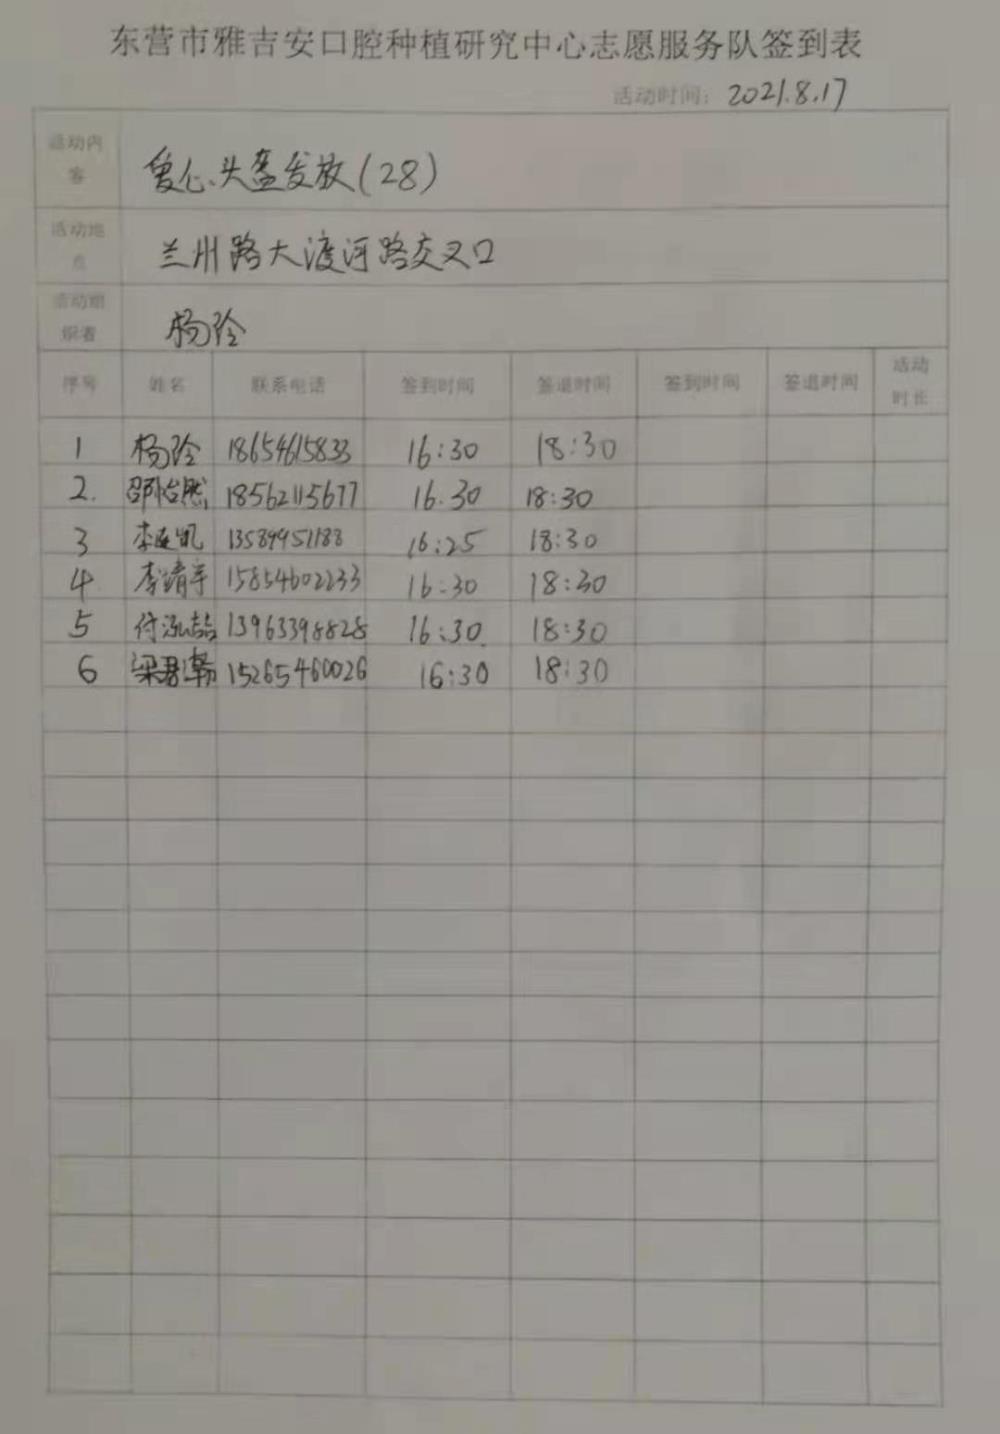 东营市雅吉安口腔种植研究中心志愿服务队签到表
活动时间: 2021.8.17
活动内容 爱心头盔发放(28)
活动地点 兰州路大渡河路交叉口
活动组织者 杨玲
序号 姓名 联系电话 签到时间 签退时间 签到时间 签退时间 活动时长
1 杨玲 18654615833 16:30 18:30
2. 邵怡然 18562115677 16.30 18:30
3 李延凯 13589951188 16:25 18:30
4 李靖宇 15854602233 16:30 18:30
5 付泓喆 13963398828 16:30 18:30
6 梁君瀚 15265460026 16:30 18:30